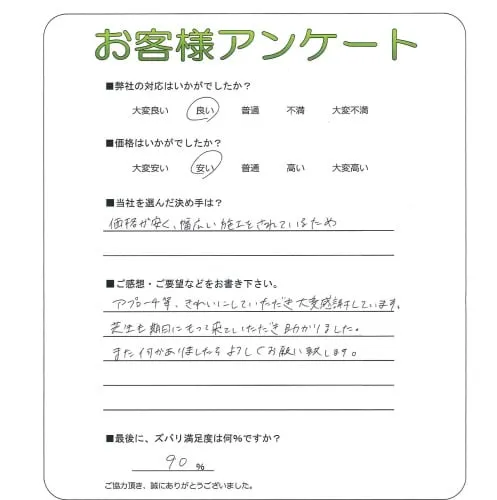 お客様アンケート
■弊社の対応はいかがでしたか？
大変良い 良い 普通 不満 大変不満
■価格はいかがでしたか？
大変安い 安い 普通 高い 大変高い
■当社を選んだ決め手は？
価格が安く、幅広い施工をされているため
■ご感想・ご要望などをお書き下さい。
アプローチ等、きれいにしていただき大変感謝しています。
芝生も期日にもって来ていただき助かりました。
また何かありましたらよろしくお願い致します。
■最後に、ズバリ満足度は何％ですか？
90 %
ご協力頂き、誠にありがとうございました。